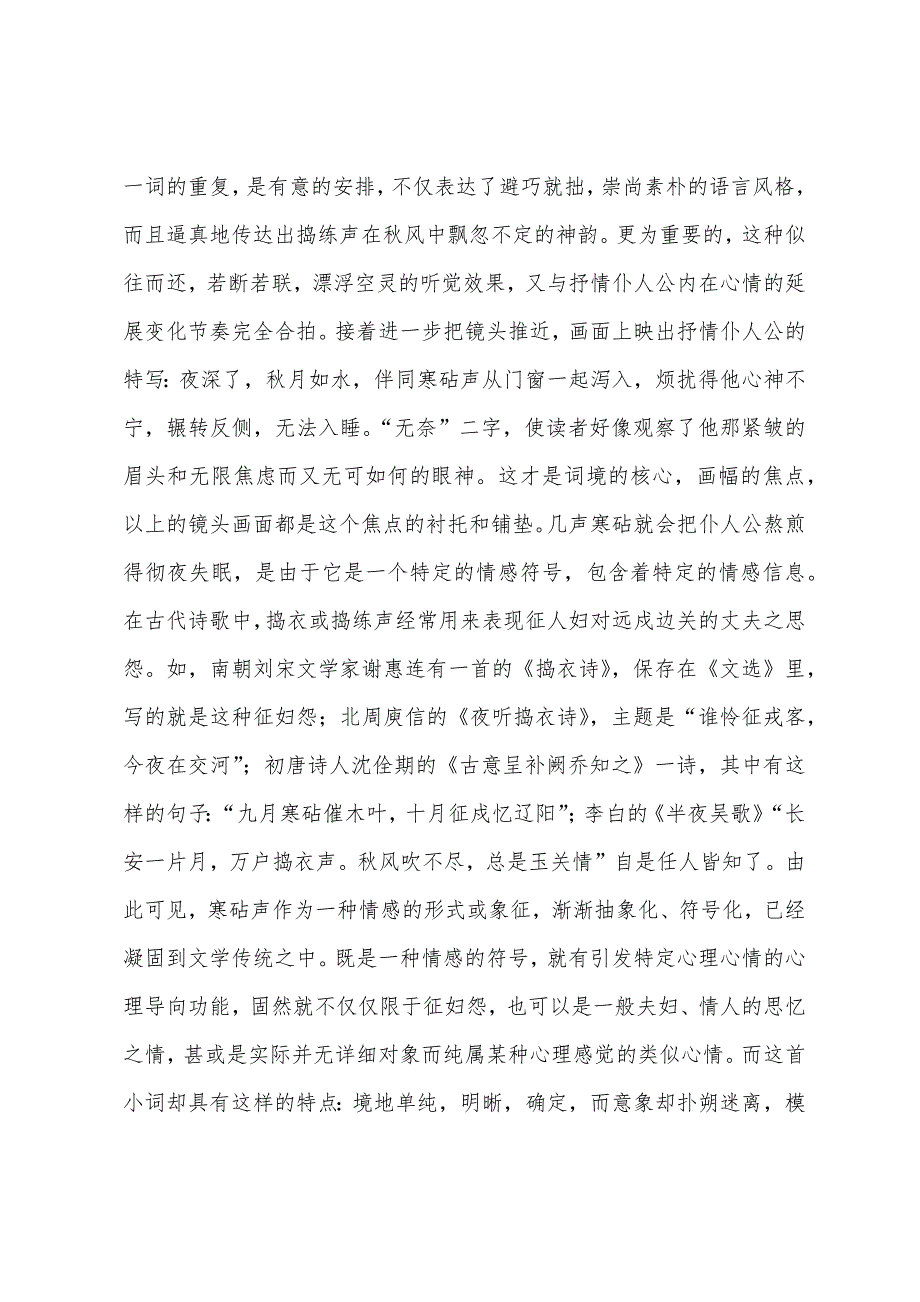 一词的重复，是有意的安排，不仅表达了避巧就拙，崇尚素朴的语言风格，
而且逼真地传达出捣练声在秋风中飘忽不定的神韵。更为重要的，这种似
往而还，若断若联，漂浮空灵的听觉效果，又与抒情仆人公内在心情的延
展变化节奏完全合拍。接着进一步把镜头推近，画面上映出抒情仆人公的
特写：夜深了，秋月如水，伴同寒砧声从门窗一起泻入，烦扰得他心神不
宁，辗转反侧，无法入睡。“无奈”二字，使读者好像观察了他那紧皱的
眉头和无限焦虑而又无可如何的眼神。这才是词境的核心，画幅的焦点，
以上的镜头画面都是这个焦点的衬托和铺垫。几声寒砧就会把仆人公熬煎
得彻夜失眠，是由于它是一个特定的情感符号，包含着特定的情感信息。
在古代诗歌中，捣衣或捣练声经常用来表现征人妇对远戍边关的丈夫之思
怨。如，南朝刘宋文学家谢惠连有一首的《捣衣诗》，保存在《文选》里，
写的就是这种征妇怨；北周庾信的《夜听捣衣诗》，主题是“谁怜征戎客，
今夜在交河”；初唐诗人沈佺期的《古意呈补阙乔知之》一诗，其中有这
样的句子：“九月寒砧催木叶，十月征戍忆辽阳”；李白的《半夜吴歌》“长
安一片月，万户捣衣声。秋风吹不尽，总是玉关情”自是任人皆知了。由
此可见，寒砧声作为一种情感的形式或象征，渐渐抽象化、符号化，已经
凝固到文学传统之中。既是一种情感的符号，就有引发特定心理心情的心
理导向功能，固然就不仅仅限于征妇怨，也可以是一般夫妇、情人的思忆
之情，甚或是实际并无详细对象而纯属某种心理感觉的类似心情。而这首
小词却具有这样的特点：境地单纯，明晰，确定，而意象却扑朔迷离，模